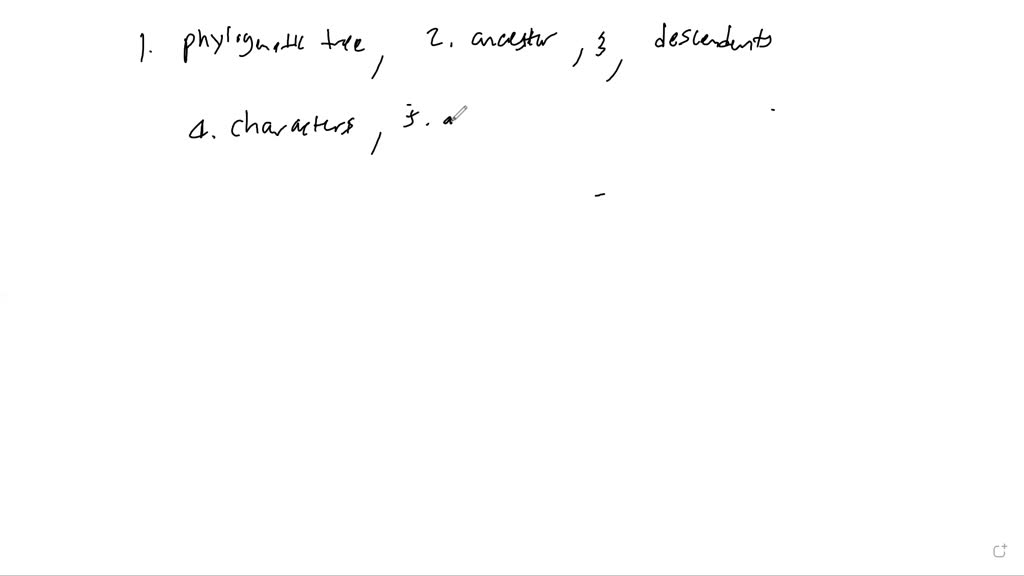 1. phylogenetic tree, 2. ancestor, 3, descendents
4. characters, 5. a